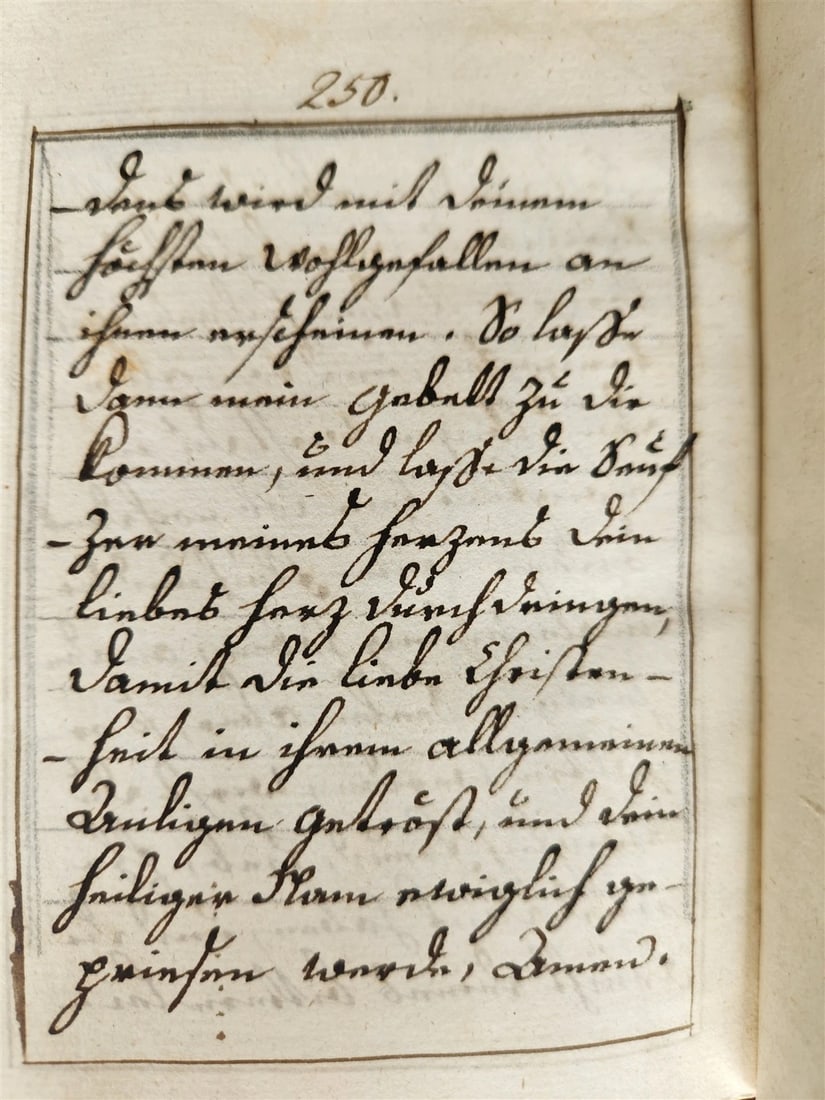 250.
-dens wird mit deinem
höchsten Wohlgefallen an
ihnen erscheinen. So lasse
dann mein Gebett zu dir
kommen, und lasse die Seuf
-zer meines Herzens dein
liebes Herz durchdringen,
damit die liebe Christen-
-heit in ihrem allgemeinen
Anligen getröst, und dein
heiliger Nam ewiglich ge-
priesen werde, Amen.